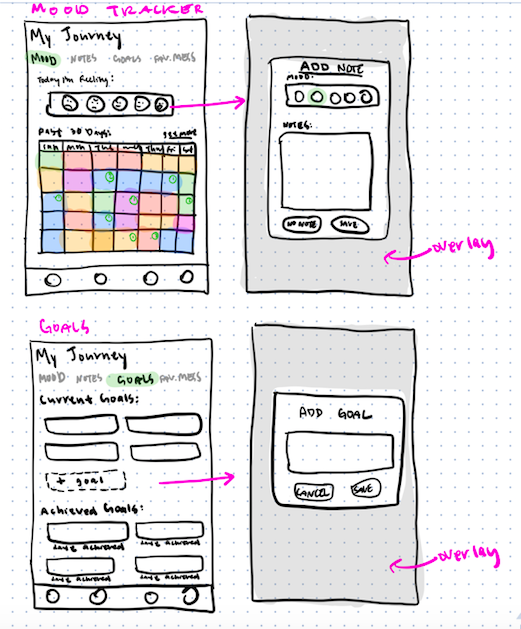 MOOD TRACKER
My Journey
MOOD · NOTES · GOALS · FAV.MESS
Today I'm Feeling:
PAST 30 Days:
SEE MORE
SUN MON TUE WED THU FRI SAT
ADD NOTE
MOOD:
NOTES:
NO NOTE SAVE
overlay
GOALS
My Journey
MOOD · NOTES GOALS FAV.MESS
Current Goals:
+ goal
Achieved Goals:
DATE ACHIEVED DATE ACHIEVED
DATE ACHIEVED DATE ACHIEVED
ADD GOAL
CANCEL SAVE
overlay